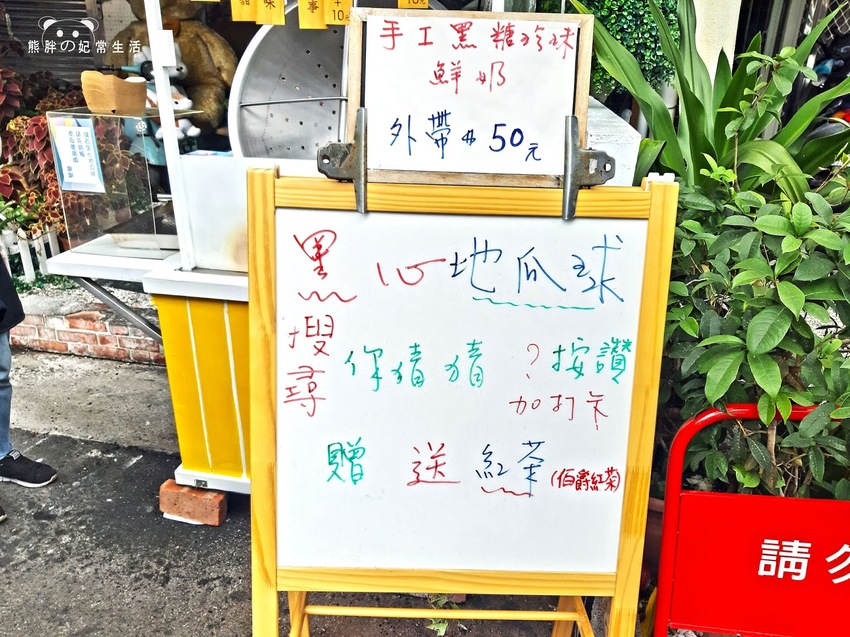 熊胖の妃常生活
味
事
+10
手工黑糖珍珠
鮮奶
外帶 50元
黑心地瓜球
搜尋 你猜猜?按讚
加打卡
贈送紅茶(伯爵紅菊)
請勿